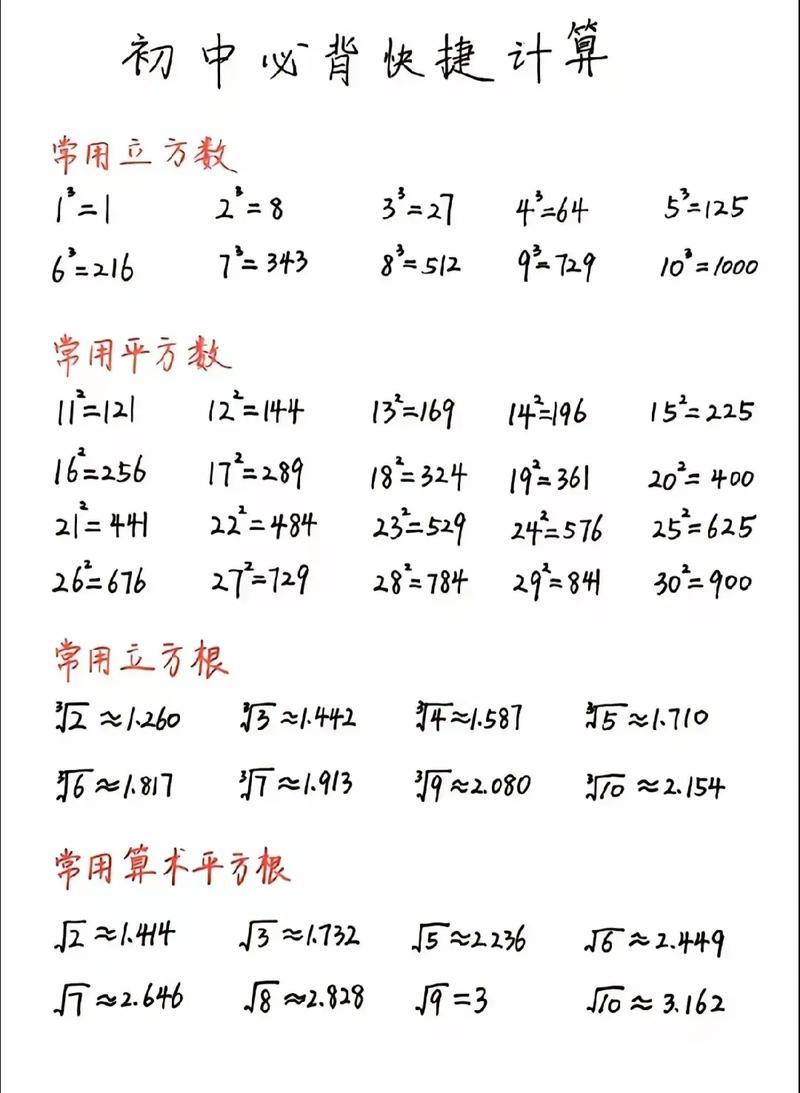 初中必背快捷计算
常用立方数
1³=1 2³=8 3³=27 4³=64 5³=125
6³=216 7³=343 8³=512 9³=729 10³=1000
常用平方数
11²=121 12²=144 13²=169 14²=196 15²=225
16²=256 17²=289 18²=324 19²=361 20²=400
21²=441 22²=484 23²=529 24²=576 25²=625
26²=676 27²=729 28²=784 29²=841 30²=900
常用立方根
∛2≈1.260 ∛3≈1.442 ∛4≈1.587 ∛5≈1.710
∛6≈1.817 ∛7≈1.913 ∛9≈2.080 ∛10≈2.154
常用算术平方根
√2≈1.414 √3≈1.732 √5≈2.236 √6≈2.449
√7≈2.646 √8≈2.828 √9=3 √10≈3.162